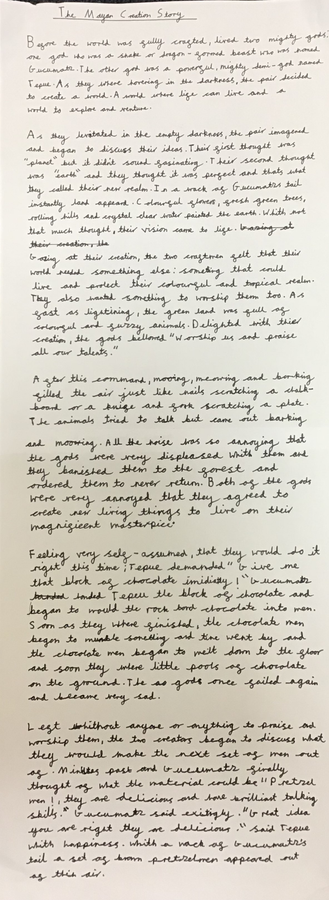 The Mayan Creation Story
Before the world was fully created, lived two mighty gods;
one god who was a snake or dragon-formed beast who was named
Gucumatz. The other god was a powerful, mighty demi-god named
Tepue. As they where hovering in the darkness, the pair decided
to create a world. A world where life can live and a
world to explore and venture.
As they levitated in the empty darkness, the pair imagened
and began to discuss their ideas. Their first thought was
"planet" but it didn't sound fasinating. Their second thought
was "earth" and they thought it was perfect and thats what
they called their new realm. In a wack of Gucumatz's tail
instantly land appeared. Colourful gloves, fresh green trees,
rolling hills and crystal clear water painted the earth. Whith not
that much thought, their vision came to life. Gazing at
their creation, the
Gazing at their creation, the two craftmen felt that their
world needed something else: someting that could
live and protect their colourful and topical realm.
They also wanted something to worship them too. As
fast as ligetining, the green land was full of
colourful and fuzzy animals. Delighted with thier
creation, the gods bellowed "Worship us and praise
all our talents."
After this command, mooing, meowing and barking
filled the air just like nails scratching a chalk-
board or a knife and fork scratching a plate.
The animals tried to talk but came out barking
and moowing. All the noise was so annoying that
the gods were very displeased whith them and
they banished them to the forest and
ordered them to never return. Both of the gods
were very annoyed that they agreed to
create new living things to live on their
magnigicent masterpice.
Feeling very self-assumed, that they would do it
right this time, Tepue demanded "Give me
that block of chocolate imidiatly!" Gucumatz
handed Tepeu the block of chocolate and
began to mould the rock chocolate into men.
Soon as they where finished, the chocolate men
began to someting and time went by and
the chocolate men began to melt down to the floor
and soon they where little pools of chocolate
on the ground. The gods once failed again
and became very sad.
Left whithout anyone or anything to praise and
worship them, the two creators began to discuss what
they would make the next set of men out
of. Minutes past and Gucumatz finally
thought of what the material could be "Pretzel
men!, they are delicious and have brilliant talking
skills." Gucumatz said existigly. "Great idea
you are right they are delicious." said Tepue
whith happiness. Whith a wack of Gucumatz's
tail a set of brown pretzelmen appeared out
of thin air.